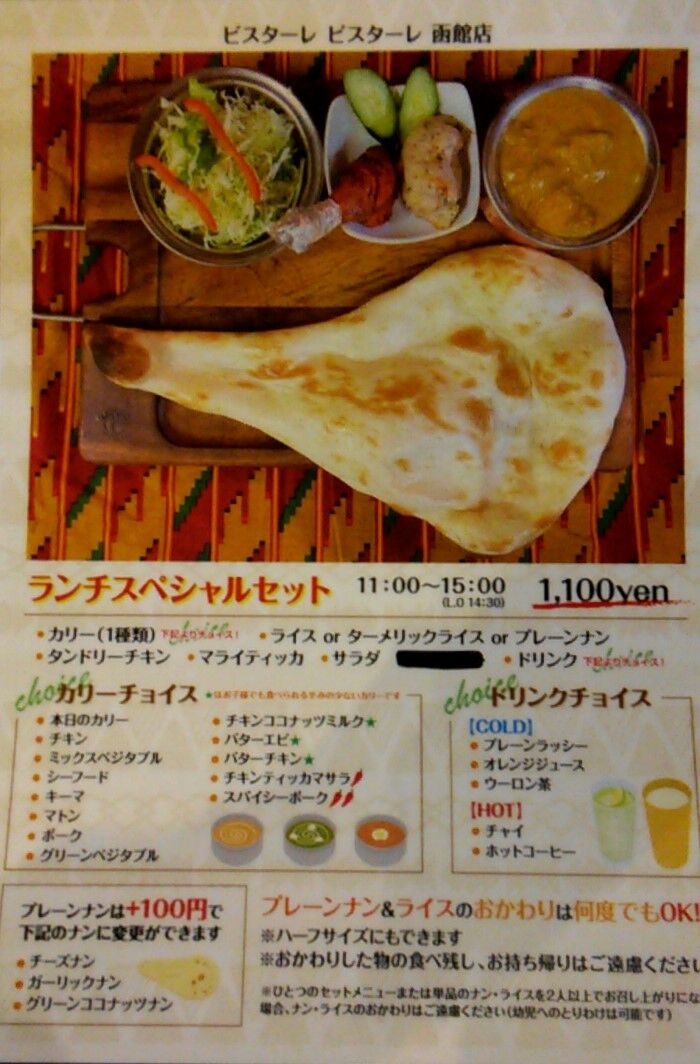 ビスターレ ビスターレ 函館店
ランチスペシャルセット 11:00〜15:00 1,100yen
(L.O 14:30)
・カリー(1種類) 下記よりチョイス! choice ・ライス or ターメリックライス or プレーンナン
・タンドリーチキン ・マライティッカ ・サラダ ・ドリンク 下記よりチョイス! choice
choice カリーチョイス ★はお子様でも食べられる辛みの少ないカリーです
・本日のカリー
・チキン
・ミックスベジタブル
・シーフード
・キーマ
・マトン
・ポーク
・グリーンベジタブル
・チキンココナッツミルク★
・バターエビ★
・バターチキン★
・チキンティッカマサラ
・スパイシーポーク
choice ドリンクチョイス
【COLD】
・プレーンラッシー
・オレンジジュース
・ウーロン茶
【HOT】
・チャイ
・ホットコーヒー
プレーンナンは+100円で
下記のナンに変更ができます
・チーズナン
・ガーリックナン
・グリーンココナッツナン
プレーンナン&ライスのおかわりは何度でもOK!
※ハーフサイズにもできます
※おかわりした物の食べ残し、お持ち帰りはご遠慮くださ
※ひとつのセットメニューまたは単品のナン・ライスを2人以上でお召し上がりにな
場合、ナン・ライスのおかわりはご遠慮ください(幼児へのとりわけは可能です)